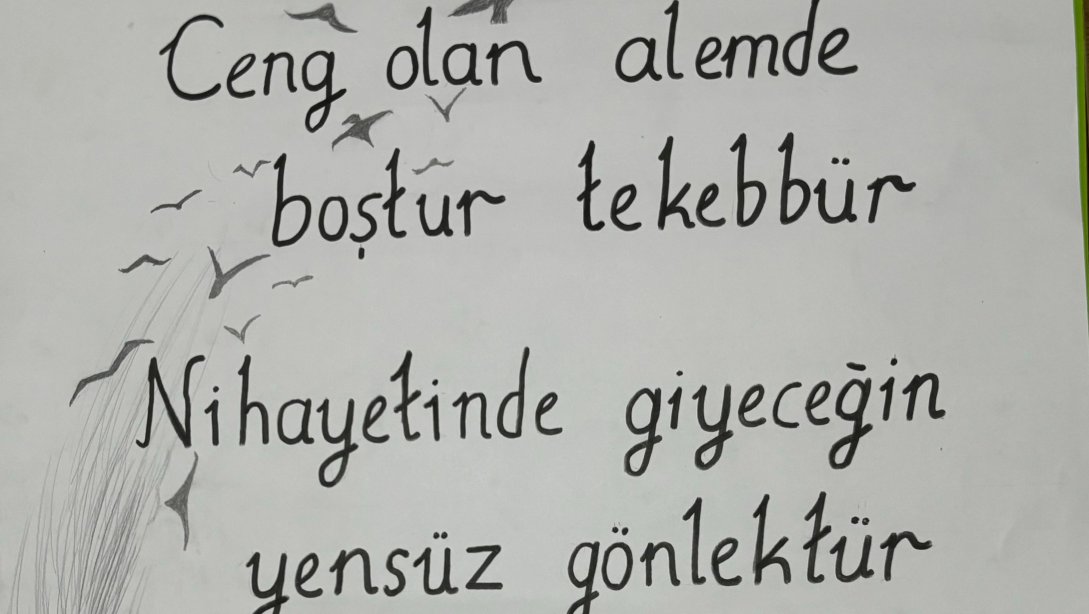 Ceng olan alemde
boştur tekebbür
Nihayetinde giyeceğin
yensüz gönlektür